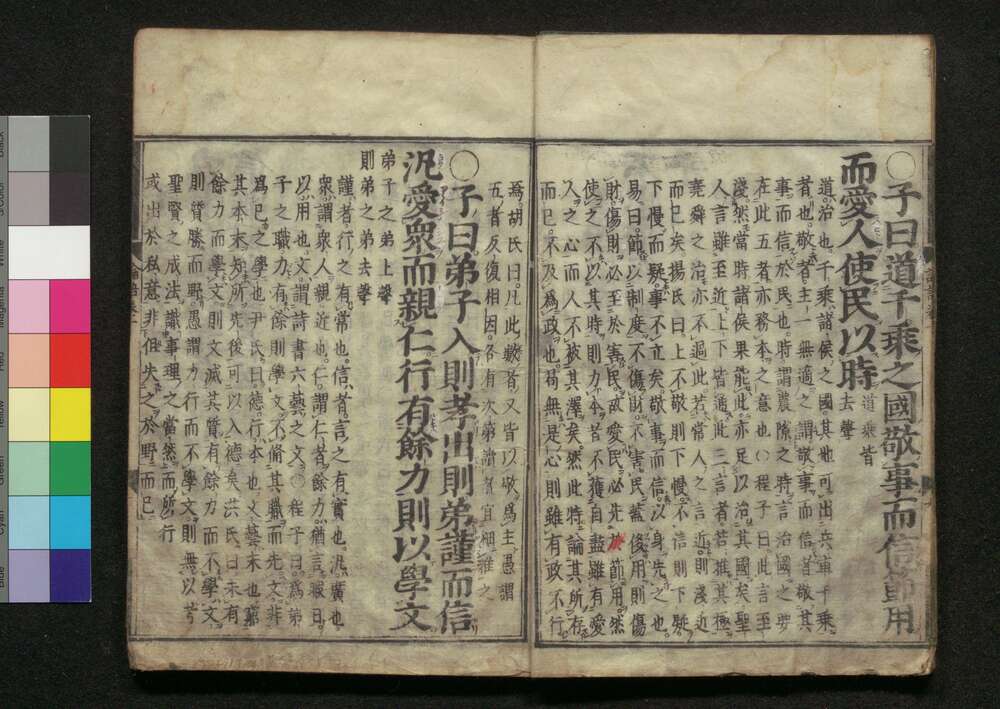 ○子曰道千乘之國敬事而信節用
而愛人使民以時道乘皆去聲
道治也千乘諸侯之國其地可出兵車千乘
者也敬者主一無適之謂敬事而信者敬其
事而信於民也時謂農隙之時言治國之要
在此五者亦務本之意也○程子曰此言至
淺然當時諸侯果能此亦足以治其國矣聖
人言雖至近上下皆通此三言者若推其極
堯舜之治亦不過此若常人之言近則淺近
而已矣揚氏曰上不敬則下慢不信則下疑
下慢而疑事不立矣敬事而信以身先之也
易曰節以制度不傷財不害民蓋侈用則傷
財傷財必至於害民故愛民必先於節用然
使之不以其時則力本者不獲自盡雖有愛
人之心而人不被其澤矣然此特論其所存
而已不及爲政也苟無是心則雖有政不行
焉胡氏曰凡此數者又皆以敬爲主愚謂
五者反復相因各有次第讀者宜細推之
○子曰弟子入則孝出則弟謹而信
汎愛衆而親仁行有餘力則以學文
弟子之弟上聲
則弟之弟去聲
謹者行之有常也信者言之有實也汎廣也
衆謂衆人親近也仁謂仁者餘力猶言暇日
以用也文謂詩書六藝之文○程子曰爲弟
子之職力有餘則學文不脩其職而先文非
爲己之學也尹氏曰德行本也文藝末也窮
其本末知所先後可以入德矣洪氏曰未有
餘力而學文則文滅其質有餘力而不學文
則質勝而野愚謂力行而不學文則無以考
聖賢之成法識事理之當然而所行
或出於私意非但失之於野而已